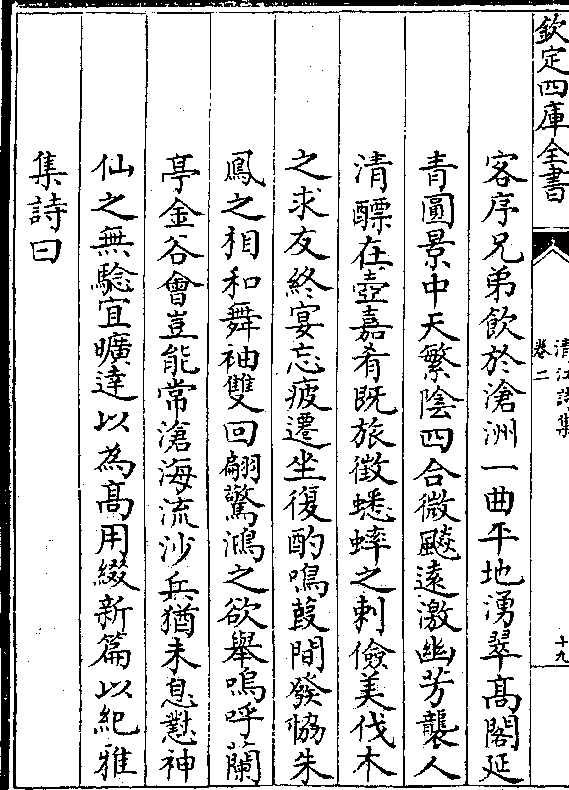 欽定四庫全書
清江詩集
卷二
十九
客序兄弟飲於滄洲一曲平地湧翠髙閣延
青圓景中天繁陰四合微飈逺激幽芳襲人
清醥在壺嘉肴既旅徵蟋蟀之刺儉美伐木
之求友終宴忘疲遷坐復酌鳴葭間發恊朱
鳳之相和舞袖雙回翩驚鴻之欲舉嗚呼蘭
亭金谷會豈能常滄海流沙兵猶未息懟神
仙之無騐宜曠達以為髙用綴新篇以紀雅
集詩曰